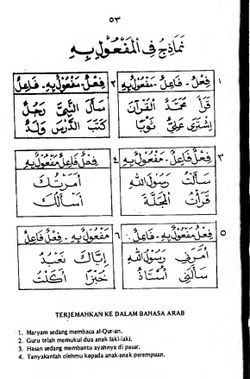 ٥٣
نَمَاذِجُ فِي الْمَفْعُوْلِ بِهِ
١
فِعْلٌ - فَاعِلٌ - مَفْعُوْلٌ بِهِ
قَرَأَ مُحَمَّدٌ الْقُرْآنَ
اِشْتَرَى عَلِيٌّ ثَوْبًا
٢
فِعْلٌ - مَفْعُوْلٌ بِهِ - فَاعِلٌ
سَأَلَ النَّبِيَّ رَجُلٌ
كَتَبَ الدَّرْسَ وَلَدٌ
٣
فِعْلٌ فَاعِلٌ - مَفْعُوْلٌ بِهِ
سَأَلْتُ رَسُوْلَ اللهِ
قَرَأْتُ الْمَجَلَّةَ
٤
فِعْلٌ فَاعِلٌ مَفْعُوْلٌ بِهِ
أَمَرْتُكَ
أَسْأَلُكَ
٥
فِعْلٌ مَفْعُوْلٌ بِهِ - فَاعِلٌ
أَمَرَنِي رَسُوْلُ اللهِ
سَأَلَنِي أُسْتَاذٌ
٦
مَفْعُوْلٌ بِهِ - فِعْلٌ فَاعِلٌ
إِيَّاكَ نَعْبُدُ
خُبْزًا أَكَلْتُ
TERJEMAHKAN KE DALAM BAHASA ARAB
1. Maryam sedang membaca al-Qur-an.
2. Guru telah memukul dua anak laki-laki.
3. Hasan sedang membantu ayahnya di pasar.
4. Tanyakanlah olehmu kepada anak-anak perempuan.